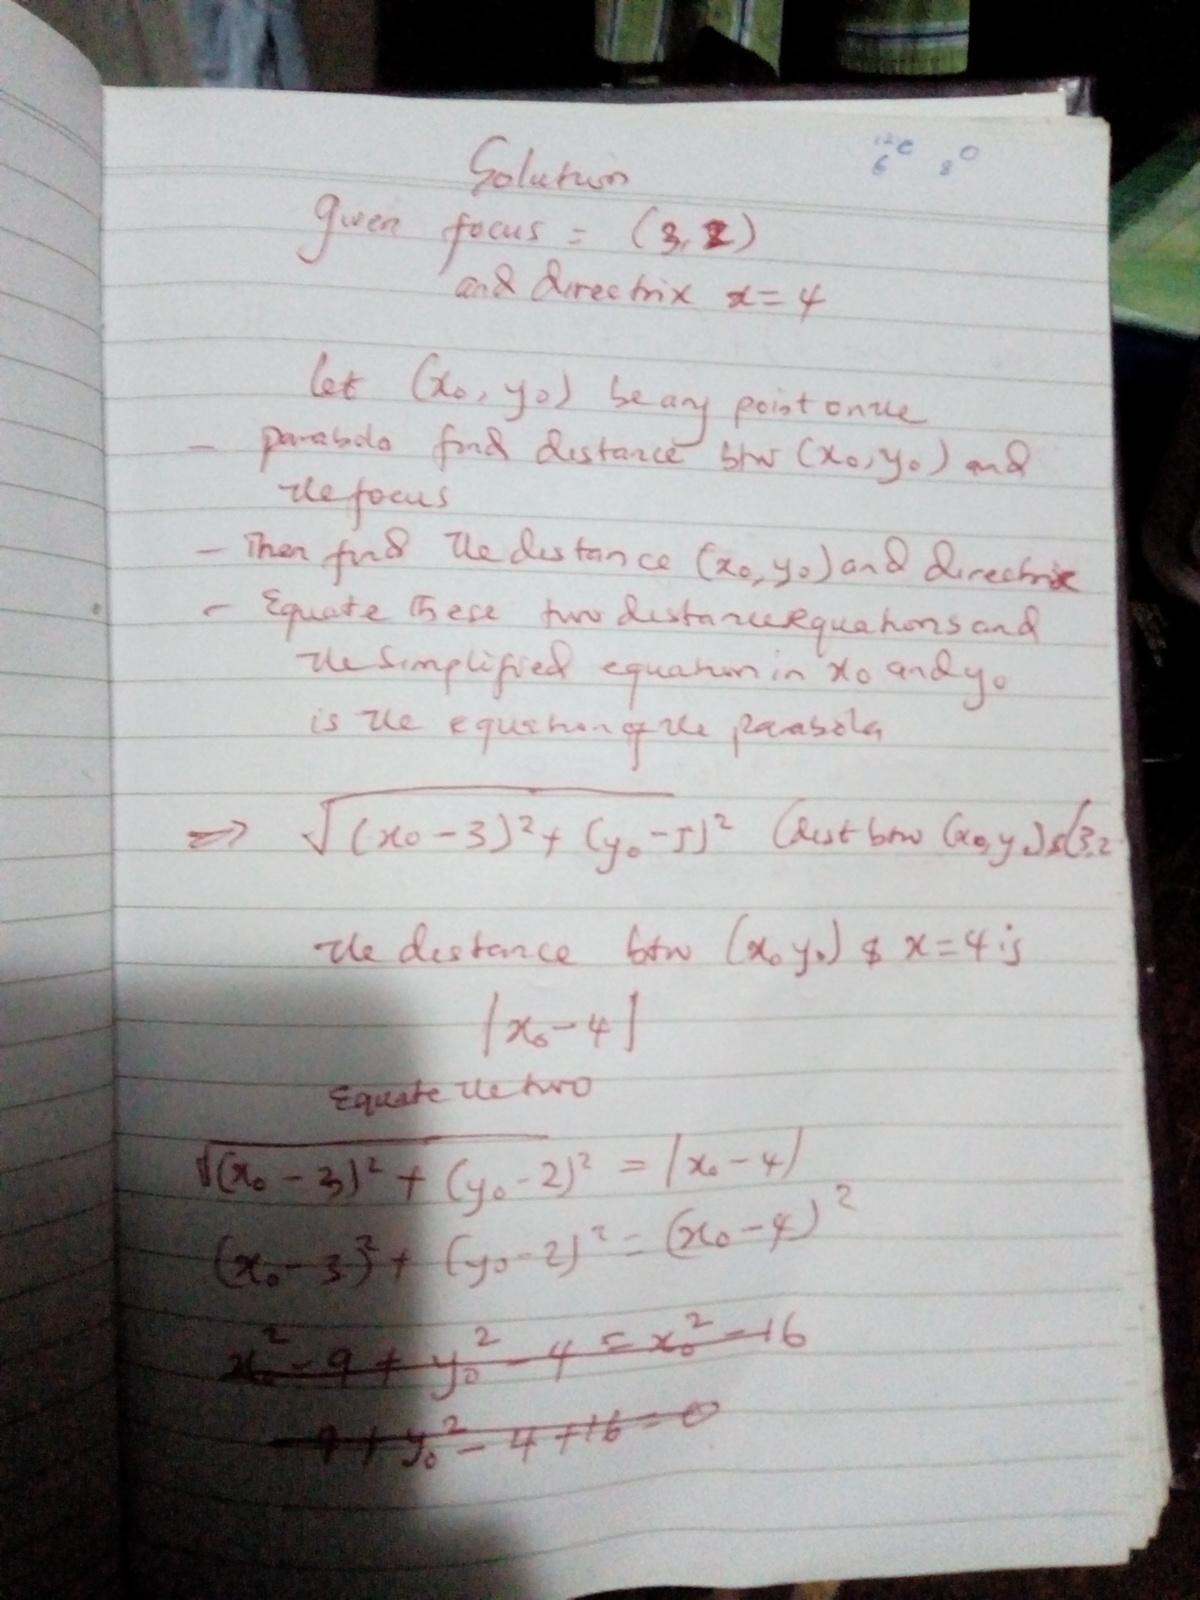 Solution
12 C 6 8 O
Given focus = (3, 2)
and directrix x = 4
Let (x₀, y₀) be any point on the
- parabola find distance btw (x₀, y₀) and
the focus
- Then find the distance (x₀, y₀) and directrix
- Equate these two distance equations and
the simplified equation in x₀ and y₀
is the equation of the parabola
⇒ √(x₀ - 3)² + (y₀ - 5)² (dist btw (x₀, y₀) & (3,2
the distance btw (x₀ y₀) & x = 4 is
|x₀ - 4|
Equate the two
√(x₀ - 3)² + (y₀ - 2)² = |x₀ - 4|
(x₀ - 3)² + (y₀ - 2)² = (x₀ - 4)²
x₀² - 9 + y₀² - 4 = x₀² - 16
- 9 + y₀² - 4 + 16 = 0